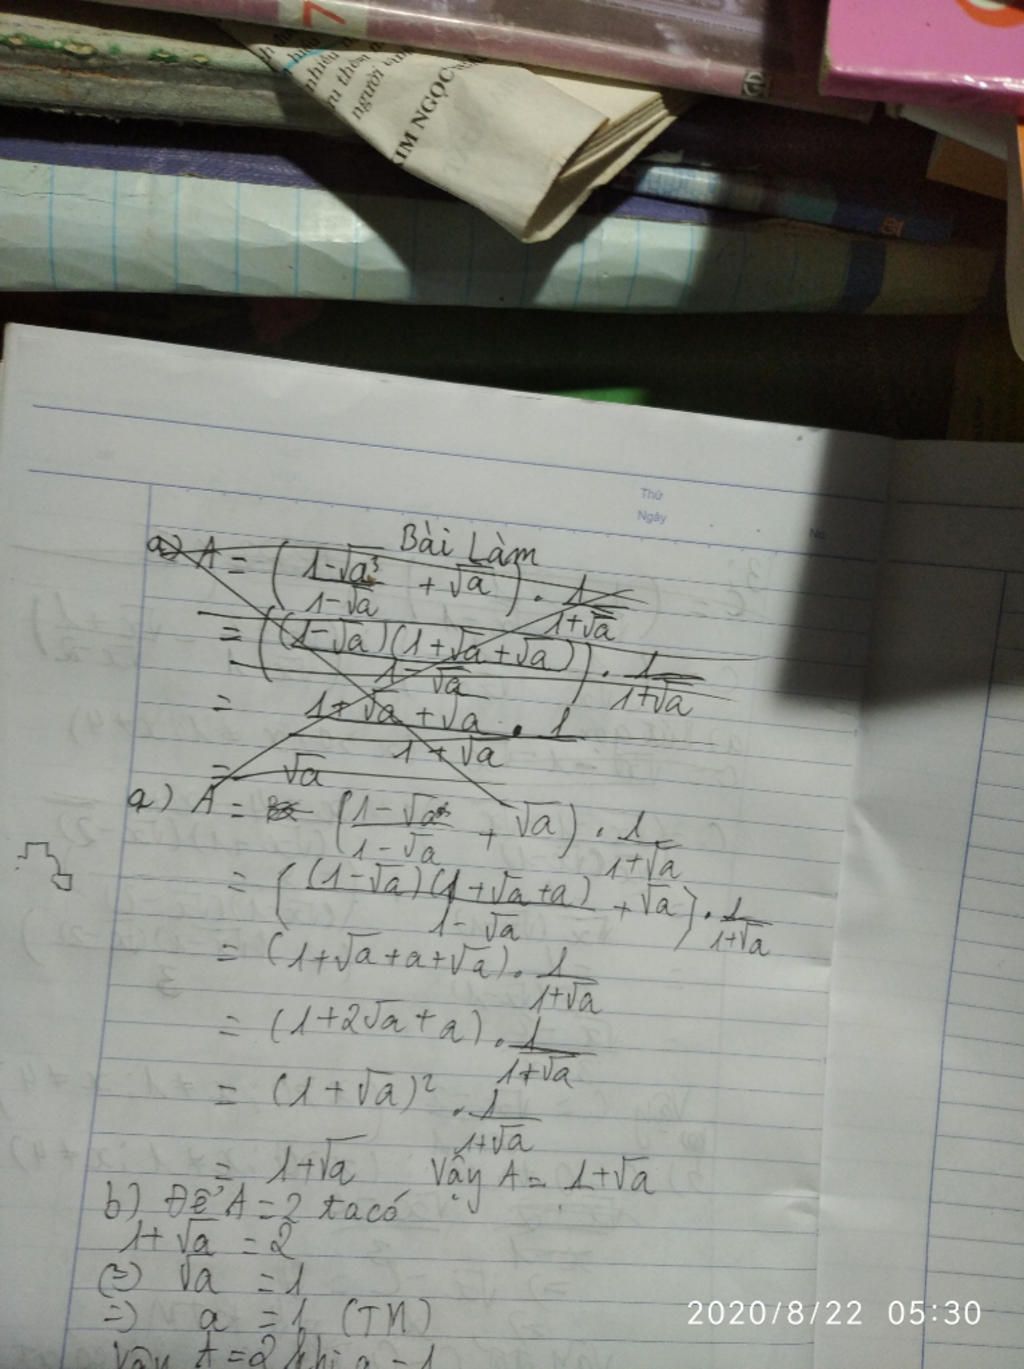 7
KIM NGỌC
người
Thứ
Ngày
No
Bài Làm
a) A = ( (1-√a³)/(1-√a) + √a ) . 1/(1+√a)
= ( (1-√a)(1+√a+√a)/(1-√a) ) . 1/(1+√a)
= (1+√a+√a)/(1+√a) . 1
= √a
a) A = ( (1-√a³)/(1-√a) + √a ) . 1/(1+√a)
= ( (1-√a)(1+√a+a)/(1-√a) + √a ) . 1/(1+√a)
= (1+√a+a+√a) . 1/(1+√a)
= (1+2√a+a) . 1/(1+√a)
= (1+√a)² . 1/(1+√a)
= 1+√a Vậy A = 1+√a
b) Để A = 2 ta có
1+√a = 2
(=) √a = 1
=) a = 1 (TM)
Vậy A = 2 khi a = 1
2020/8/22 05:30